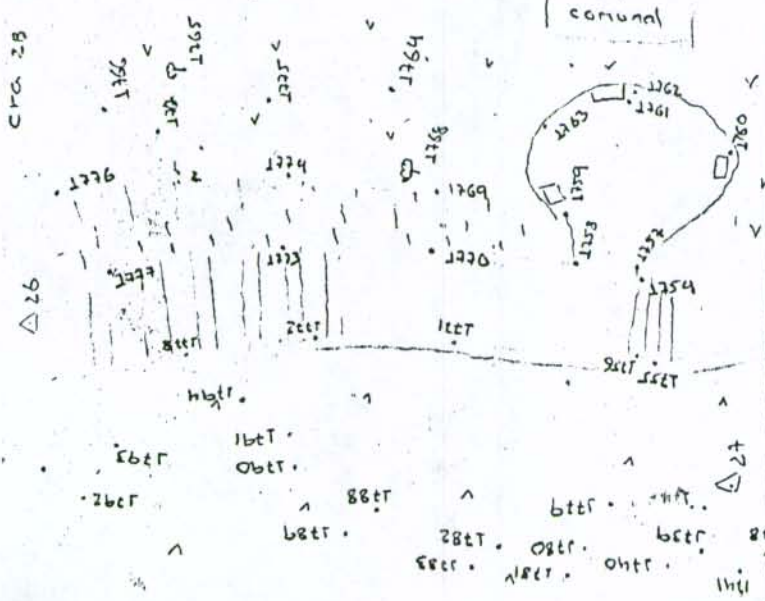 comunal
cra 28
1766
1765
1775
1764
1762
1761
1763
1760
1768
1776
1774
1769
1759
1758
1757
1777
1773
1770
1754
△26
1778
1772
1771
1756
1755
1794
1791
1793
1790
1792
1788
1789
△27
1779
1782
1780
1739
1783
1781
1740
1741